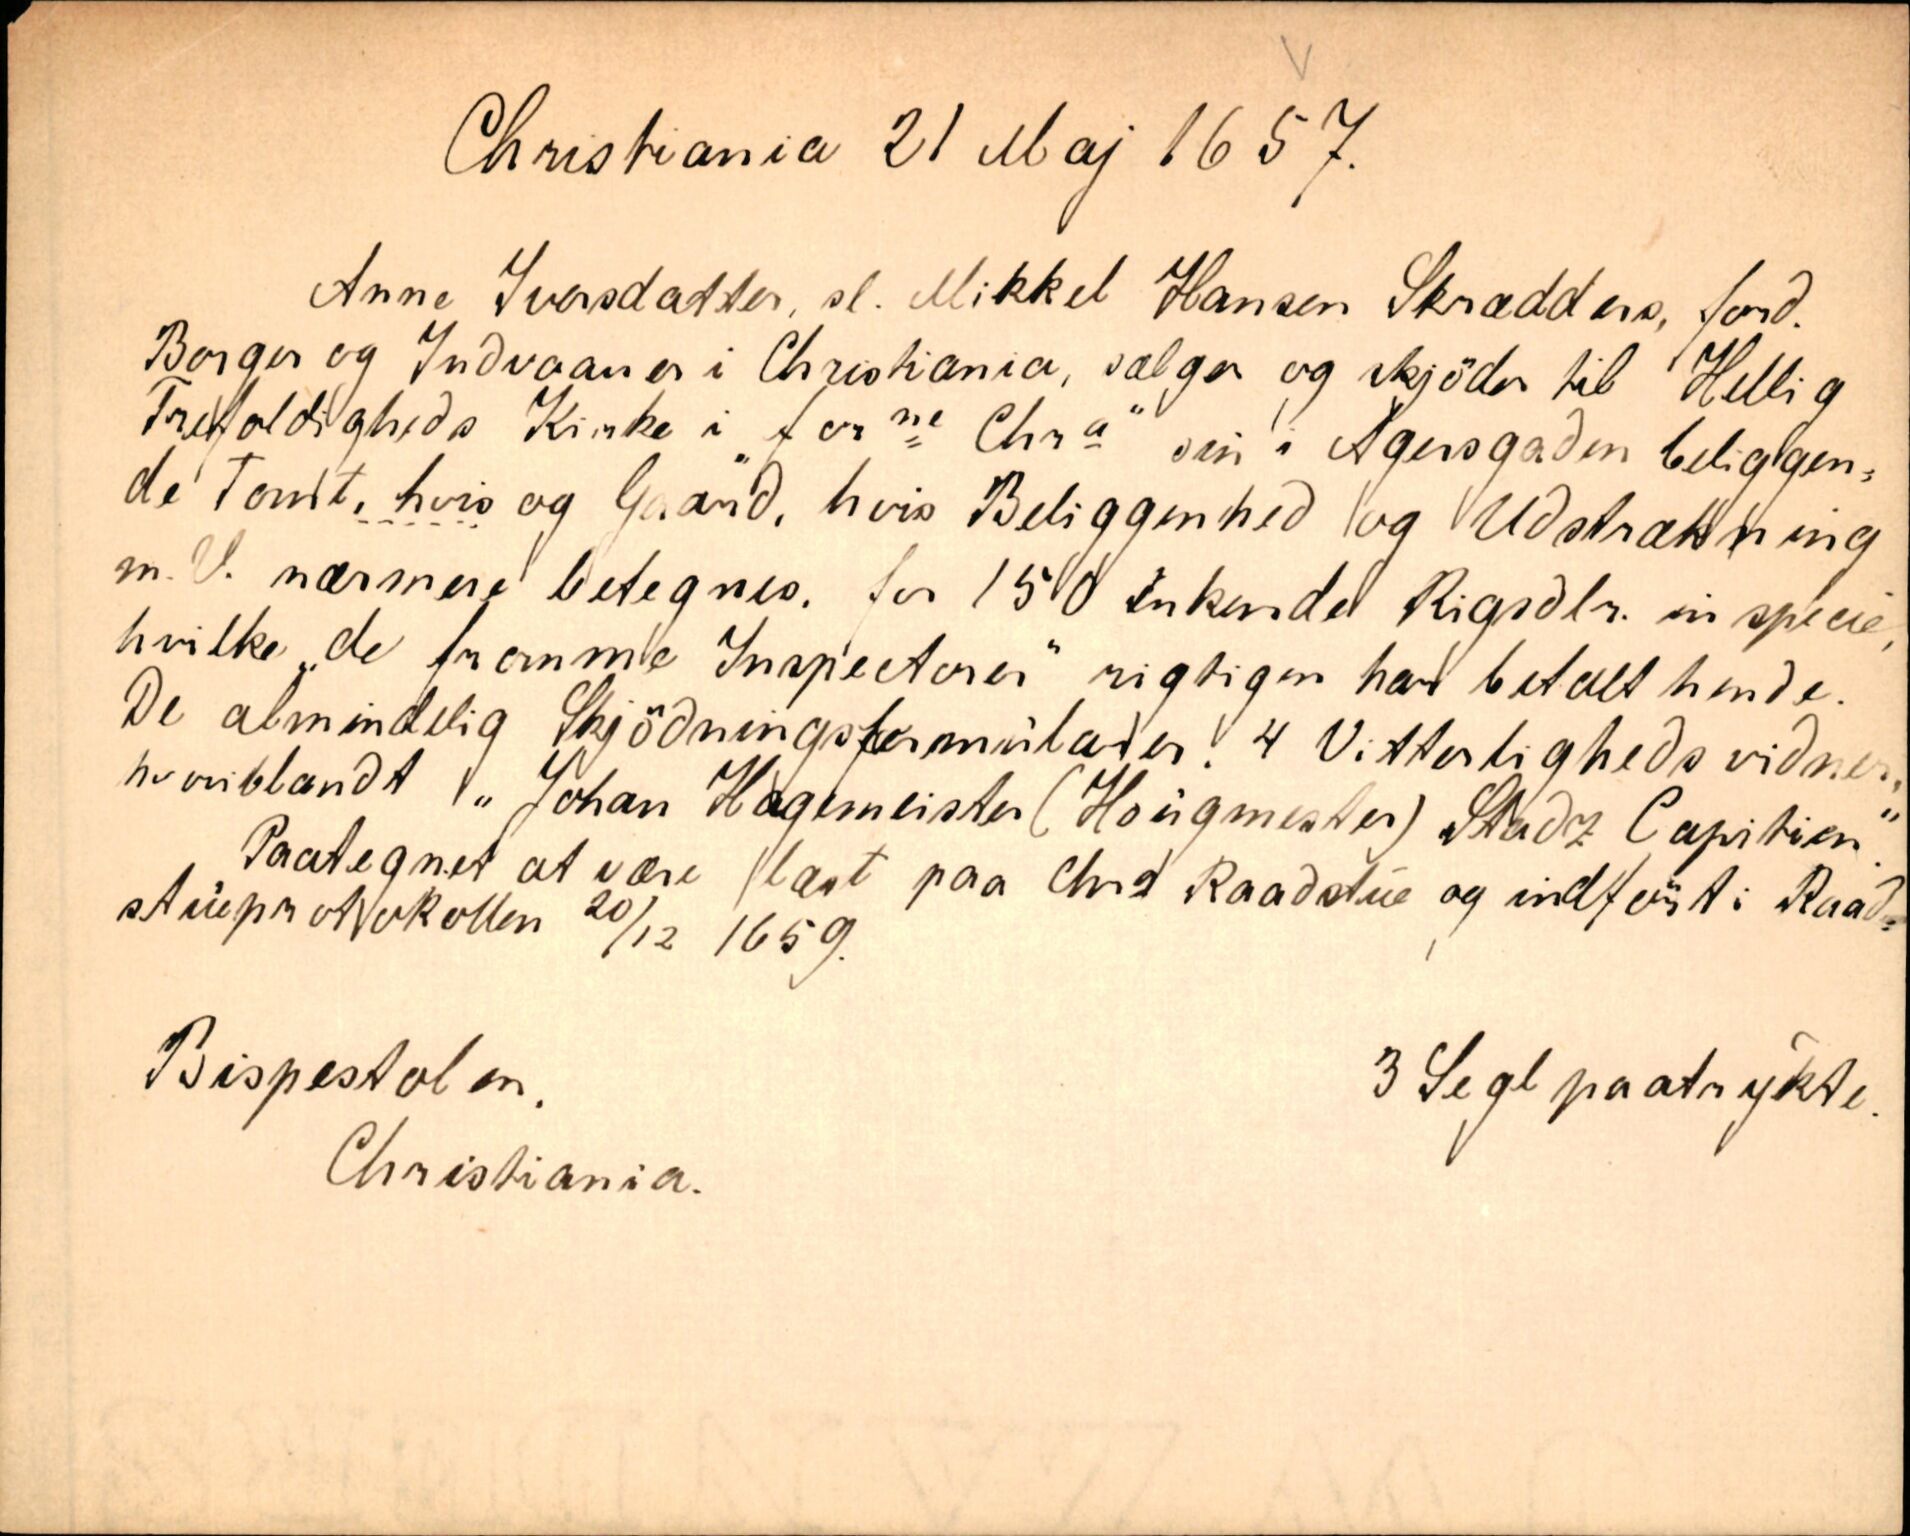 V
Christiania 21 Maj 1657.
Anne Iversdatter, sl. Mikkel Hansen Skrædders, ford.
Borger og Indvaaner i Christiania, sælger og skjöder til Hellig
Trefoldigheds Kirke i „forne Chra“ sin i Agersgaden beliggen=
de Tomt, hvis og Gaard, hvis Beliggenhed og Udstrækning
m. V. nærmere betegnes, for 150 enkende Rigsdlr. in specie,
hvilke „de fromme Inspectorer“ rigtigen har betalt hende.
De almindelig Skjödningsformularer. 4 Vitterlighedsvidner,
hvoriblandt „Johan Hagemeister (Hougmester) Stadz Capitien“.
Paategnet at være læst paa Chra Raadstue og indfört i Raad=
stueprotokollen 20/12 1659.
Bispestolen.
3 Segl paatrykte.
Christiania.